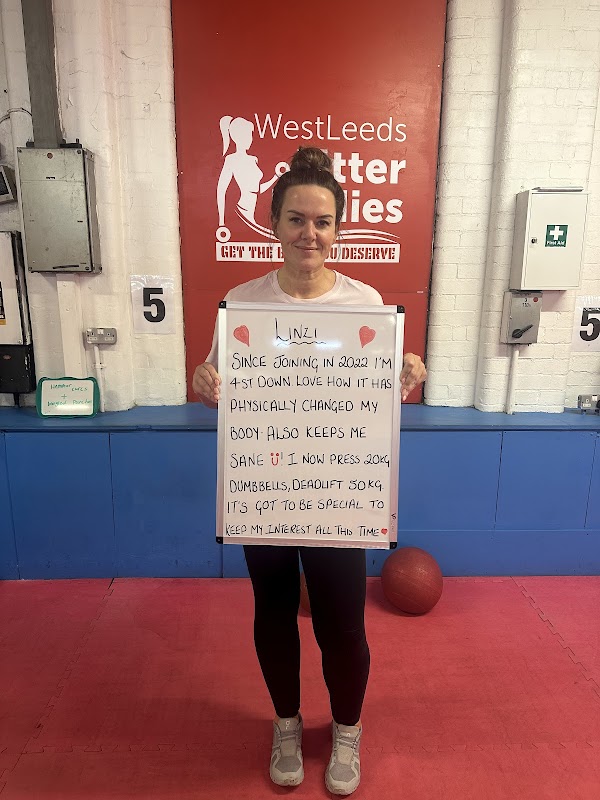 WestLeeds
itter
dies
GET THE B OU DESERVE
First Aid
5
5
5
LINZI
SINCE JOINING IN 2022 I'M
4-ST DOWN LOVE HOW IT HAS
PHYSICALLY CHANGED MY
BODY-ALSO KEEPS ME
SANE ! I NOW PRESS 20KG
DUMBBELLS, DEADLIFT 50KG
IT'S GOT TO BE SPECIAL TO
KEEP MY INTEREST ALL THIS TIME